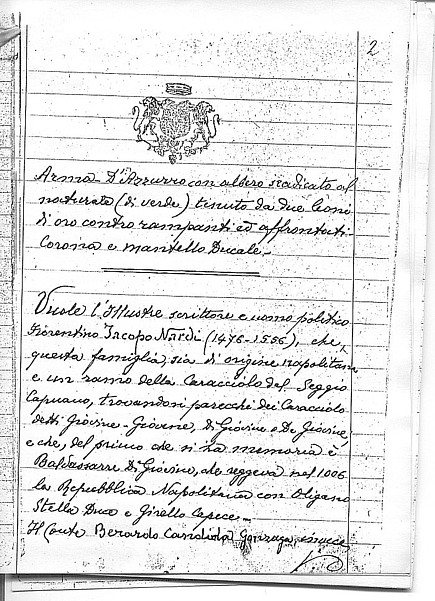 2
Arma D'Azzurro con albero sradicato al
naturale (di verde) tenuto da due leoni
di oro contro rampanti ed affrontati
Corona e mantello Ducale.
Vuole l'Illustre scrittore e uomo politico
Fiorentino Jacopo Nardi (1476-1556), che,
questa famiglia, sia di origine napolitana
e un ramo della Caracciolo del Seggio
Capuano, trovandosi parecchi dei Caracciolo
detti Giovine-Giovene, Di Giovine e De Giovine,
e che, del primo che si ha memoria è
Baldassarre Di Giovino, che reggeva nel 1006
la Repubblica Napolitana con Oligano
Stella Duca e Girello Capece -
Il Conte Berardo Candida Gonzaga, invece,